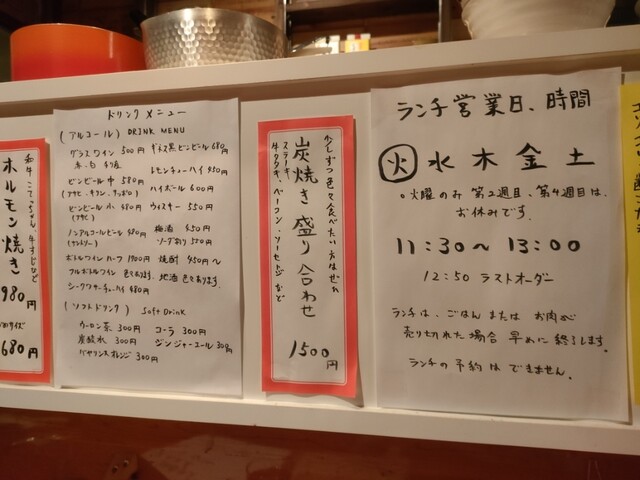 和牛 こてっちゃん 牛すじひど
ホルモン焼き
980円
680円
ドリンクメニュー
(アルコール) DRINK MENU
グラスワイン 500円
赤・白
ギネス黒ビンビール 680円
ビンビール 中 580円
(アサヒ・キリン・サッポロ)
ビンビール 小 480円
(アサヒ)
ノンアルコールビール 480円
(サントリー)
ボトルワイン ハーフ 1900円
フルボトルワイン 色々あります
シークワサーチューハイ 480円
レモンチューハイ 450円
ハイボール 600円
ウィスキー 550円
梅酒 450円
ソーダ割り 550円
焼酎 450円〜
地酒 色々あります。
(ソフトドリンク) Soft Drink
ウーロン茶 300円
炭酸水 300円
バヤリースオレンジ 300円
コーラ 300円
ジンジャーエール 300円
少しずつ色々食べたい方はぜひ
炭焼き盛り合わせ
ステーキ、
牛タタキ、ベーコン・ソーセージなど
1500円
ランチ営業日、時間
火 水 木 金 土
○火曜のみ 第2週目、第4週目は、
お休みです。
11:30〜13:00
12:50 ラストオーダー
ランチは、ごはん または お肉が
売り切れた場合 早めに終了します。
ランチの予約は できません。